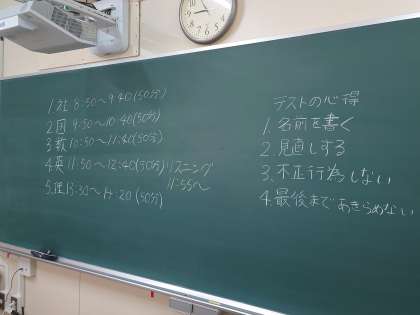 1.社 8:50〜9:40(50分)
2.国 9:50〜10:40(50分)
3.数 10:50〜11:40(50分)
4.英 11:50〜12:40(50分) リスニング
11:55〜
5.理 13:30〜14:20(50分)
テストの心得
1.名前を書く
2.見直しする
3.不正行為しない
4.最後まであきらめない